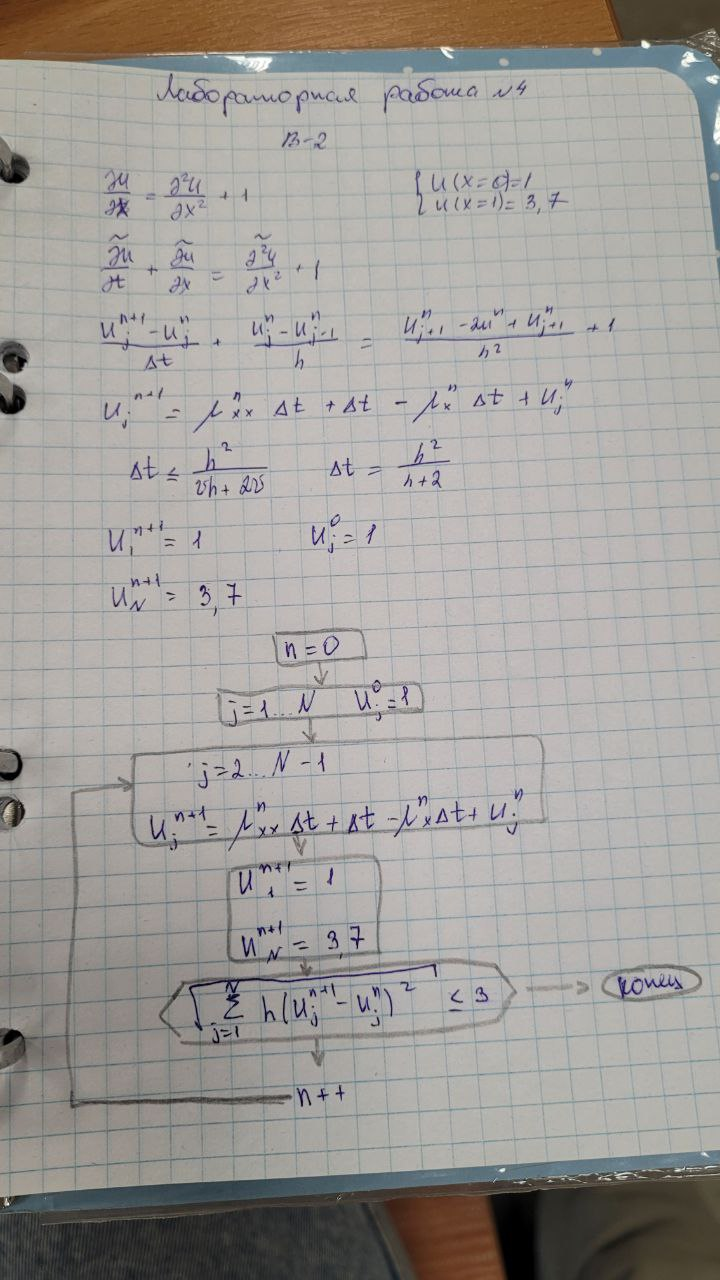 Лабораторная работа №4
В-2
∂u/∂x = ∂²u/∂x² + 1 { u(x=0)=1
u(x=1)=3,7
∂ũ/∂t + ∂ũ/∂x = ∂²ũ/∂x² + 1
(u_j^{n+1} - u_j^n)/Δt + (u_j^n - u_{j-1}^n)/h = (u_{j+1}^n - 2u^n + u_{j+1}^n)/h² + 1
u_j^{n+1} = μ_{xx}^n Δt + Δt - μ_x^n Δt + u_j^n
Δt ≤ h²/(vh + 2v) Δt = h²/(h+2)
u_1^{n+1} = 1 u_j^0 = 1
u_N^{n+1} = 3,7
n = 0
j=1...N u_j^0=1
j=2...N-1
u_j^{n+1} = μ_{xx}^n Δt + Δt - μ_x^n Δt + u_j^n
u_1^{n+1} = 1
u_N^{n+1} = 3,7
√(∑_{j=1}^N h(u_j^{n+1} - u_j^n)²) ≤ з конец
n++